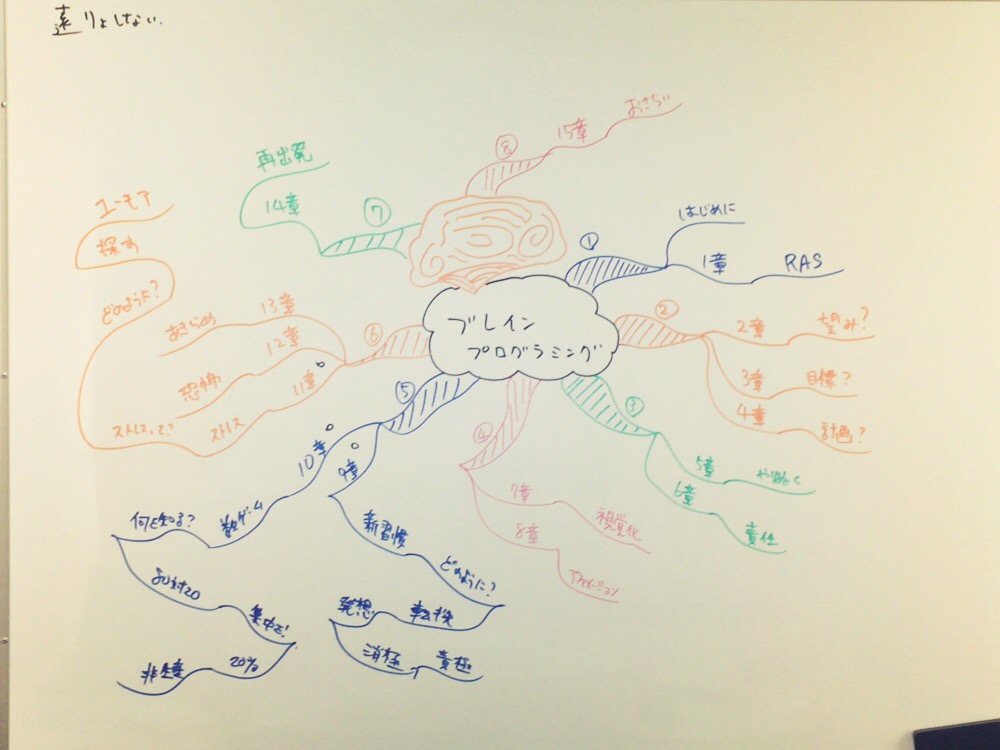 遠りょしない.
ブレイン
プログラミング
①
はじめに
1章 RAS
②
2章 望み?
3章 目標?
4章 計画?
③
5章 やりぬく
6章 責任
④
7章 視覚化
8章 アファメーション
⑤
9章
新習慣
どのように?
転換
発想
消極
10章
数ゲーム
何を知る?
80対20
集中せ!
20%
⑥
11章
ストレス
ストレスって?
どのように?
探す
ユーモア
12章
恐怖
13章
あきらめ
⑦
14章
再出発
⑧
15章
おさらい